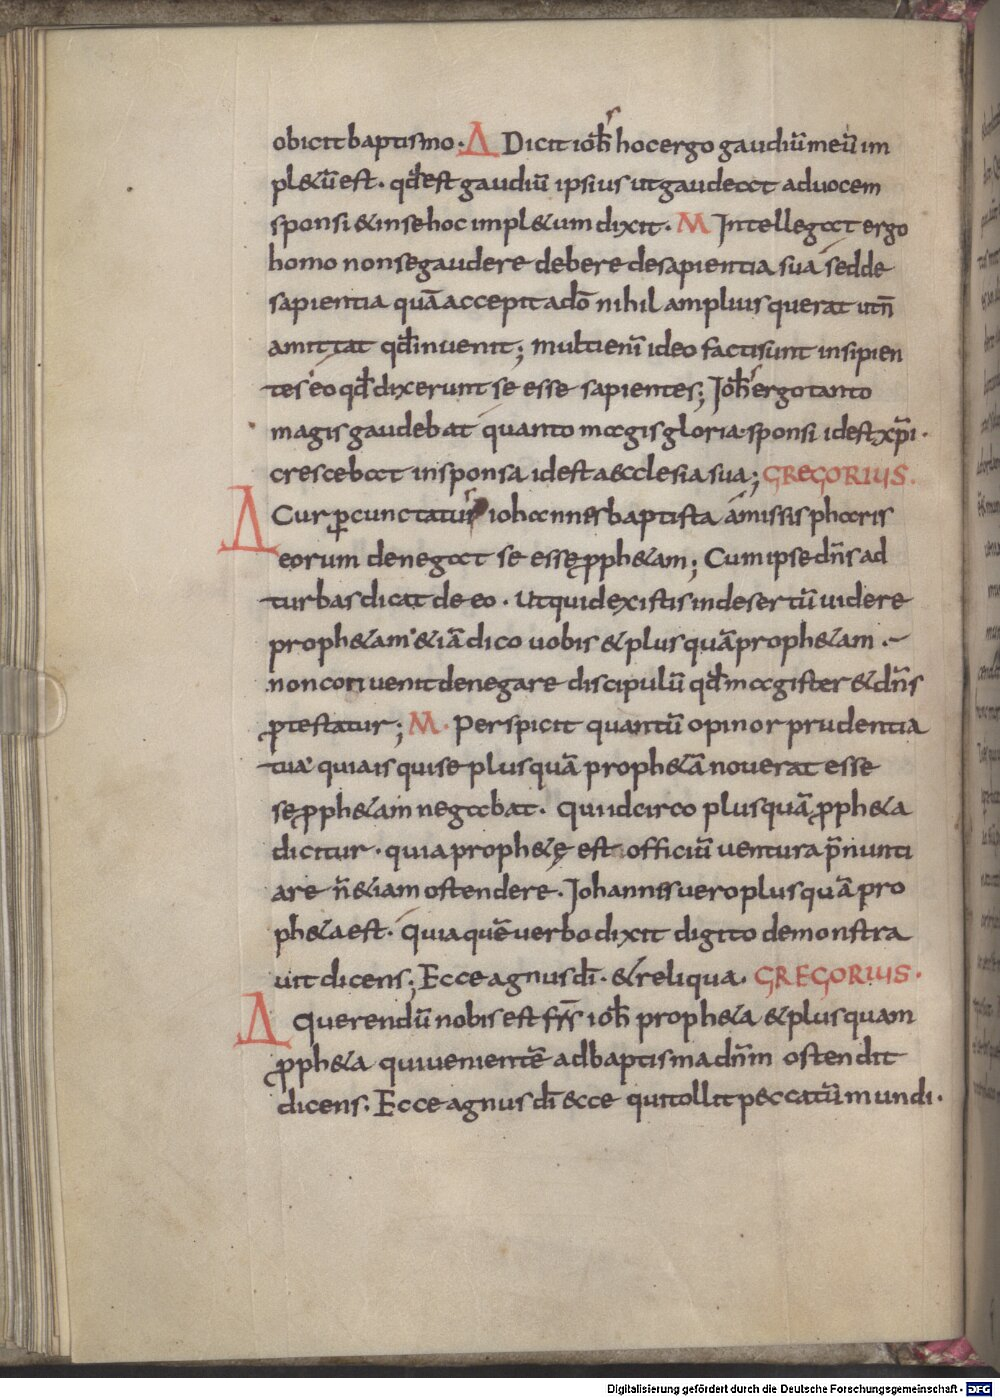 obicit baptismo. Δ Dicit ioh̅s hoc ergo gaudiū meū im
pl&ū est. qd̅ est gaudiū ipsius ut gaudeat ad uocem
sponsi & in se hoc impl&um dixit. M Intellegat ergo
homo non se gaudere debere de sapientia sua sed de
sapientia quā accepit a dō nihil amplius querat ut n̄
amittat qd̅ inuenit; multi eni̅ ideo facti sunt insipien
tes eo qd̅ dixerunt se esse sapientes; Ioh̅s ergo tanto
magis gaudebat quanto magis gloria sponsi id est xp̄i.
crescebat in sponsa id est aecclesia sua; GREGORIUS.
Δ Cur ꝑcunctatus iohannes baptista a missis pharis
eorum denegat se esse ꝓph&am; Cum ipse dn̄s ad
turbas dicat de eo. Ut quid existis in desertū uidere
proph&am & iā dico uobis & plus quā proph&am.
non conuenit denegare discipulū qd̅ magister & dn̄s
ꝓtestatur; M. Perspicit quantū opinor prudentia
tua quia is qui se plus quā proph&ā nouerat esse
se ꝓph&am negabat. Qui idcirco plus quā ꝓph&a
dicitur. quia proph&ę est officiū uentura p̄nunti
are n̄ &iam ostendere. Iohannis uero plus quā pro
ph&a est. Quia quē uerbo dixit digito demonstra
uit dicens; Ecce agnus dī. & reliqua. GREGORIUS.
Δ Querendū nobis est fr̄s ioh̅ proph&a & plus quam
ꝓph&a qui uenientē ad baptisma dn̄m ostendit
dicens. Ecce agnus dī ecce qui tollit peccatū mundi.
Digitalisierung gefördert durch die Deutsche Forschungsgemeinschaft - DFG